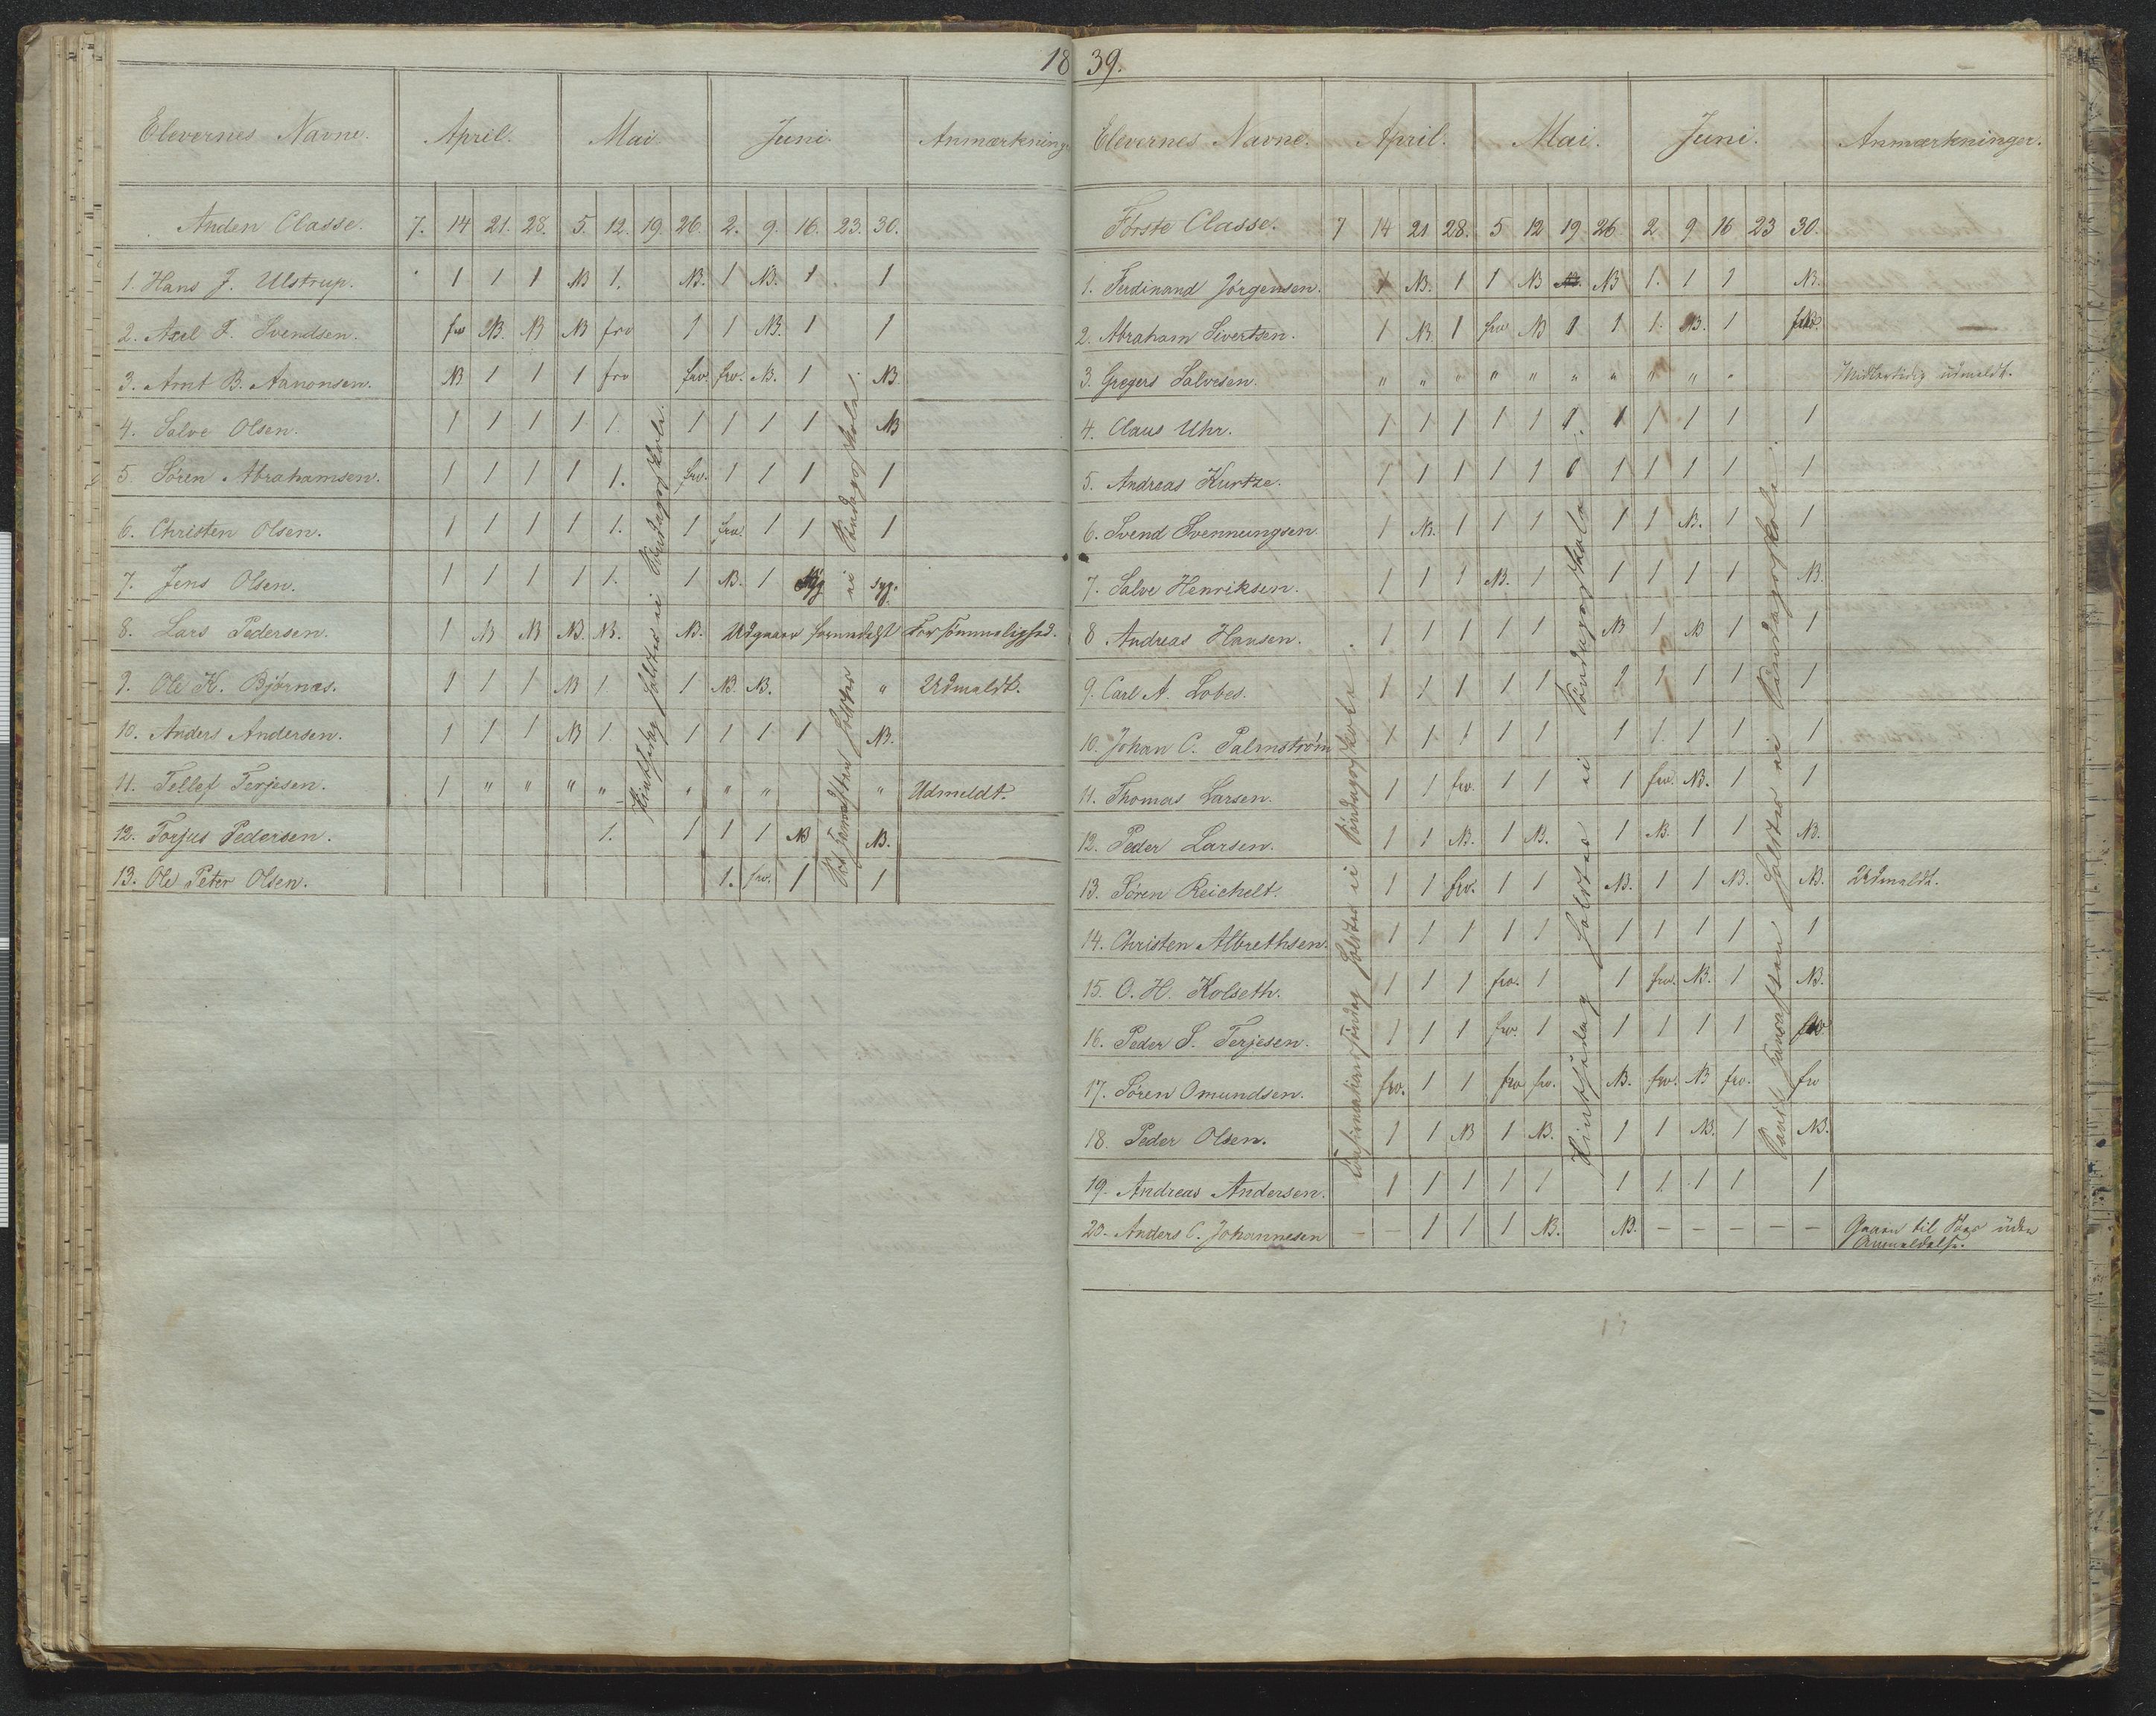 18
Elevernes Navne. April. Mai Juni. Anmærkning
Anden Classe. 7. 14 21. 28. 5. 12. 19. 26. 2. 9. 16. 23. 30.
1. Hans J. Ulstrup. 1 1 1 NB 1. NB. 1 NB. 1 1
2. Axel F. Svendsen. frv NB. NB NB frv 1 1 NB. 1 1
3. Arnt B. Aanonsen. NB 1 1 1 frv frv. frv. NB. 1 NB.
4. Salve Olsen. 1 1 1 1 1. 1 1 1 1 NB
5. Søren Abrahamsen. 1 1 1 1 1. frv. 1 1 1 1
6. Christen Olsen. 1 1 1 1 1. 1 frv. 1 1 1
7. Jens Olsen. 1 1 1 1 1. 1 NB. 1 Syg syg.
8. Lars Pedersen. 1 NB NB NB. NB. NB. Udgaaer formedelst Forsømmelighed.
9. Ole K. Bjørnæs. 1 1 1 NB 1 1 NB. NB. " Udmeldt.
10. Anders Andersen. 1 1 1 NB 1. 1 1 1 1 NB.
11. Tellef Terjesen. 1 " " " " " " " " Udmeldt.
12. Torjus Pedersen. 1. 1 1 1 NB NB.
13. Ole Peter Olsen. 1. frv. 1 1
holdtes ei Søndagsskole.
holdtes ei Søndagsskole.
39.
Elevernes Navne. April. Mai. Juni. Anmærkninger.
Første Classe. 7 14 21 28. 5 12 19 26 2 9 16 23 30.
1. Ferdinand Jørgensen. 1 NB. 1 1 NB NB. NB 1. 1 1 NB.
2. Abraham Sivertsen. 1 NB 1 frv NB 1 1 1. NB. 1
3. Gregers Salvesen. " " " " " " " " " " Midlertidig udmeldt.
4. Claus Uhr. 1 1 1 1 1 1. 1 1 1 1 1
5. Andreas Kurtze. 1 1 1 1 1 1 1 1 1 1
6. Svend Svennungsen. 1 NB. 1 1 1 1 1 NB. 1 1
7. Salve Henriksen. 1 1 1 NB. 1 1 1 1 1 NB.
8 Andreas Hansen. 1 1 1 1 1 NB 1 NB 1 1
9. Carl A. Lobes. 1 1 1 1 1 1 1 1 1 1
10. Johan C. Palmstrøm 1 1 1 1 1 1 1. 1 1 1
11. Thomas Larsen. 1 1 frv. 1 1 1 frv. NB. 1 1
12. Peder Larsen. 1 1 NB. 1 NB. 1 NB. 1 1 NB.
13. Søren Reichelt. 1 1 frv. 1 1 NB. 1 1 NB. NB. Udmeldt.
14. Christen Albrethsen. 1 1 1 1 1 1 1 1 1 1
15. O. H. Kolseth. 1 1 1 frv. 1 1 frv. NB. 1 NB.
16. Peder S. Terjesen. 1 1 1 frv. 1 1 1 1 1 frv
17. Søren Omundsen. frv. 1 1 frv frv. NB. frv. NB frv. frv
18. Peder Olsen. 1 1 NB 1 NB. 1 1 NB. 1 NB.
19. Andreas Andersen. 1 1 1 1 1 1 1. 1 1 1
20. Anders C. Johannesen – – 1 1 1 NB. NB. – – – – – til Søes uden
Anmeldelse.
holdtes ei Søndagsskole.
holdtes ei Søndagsskole
holdtes ei Søndagsskole.